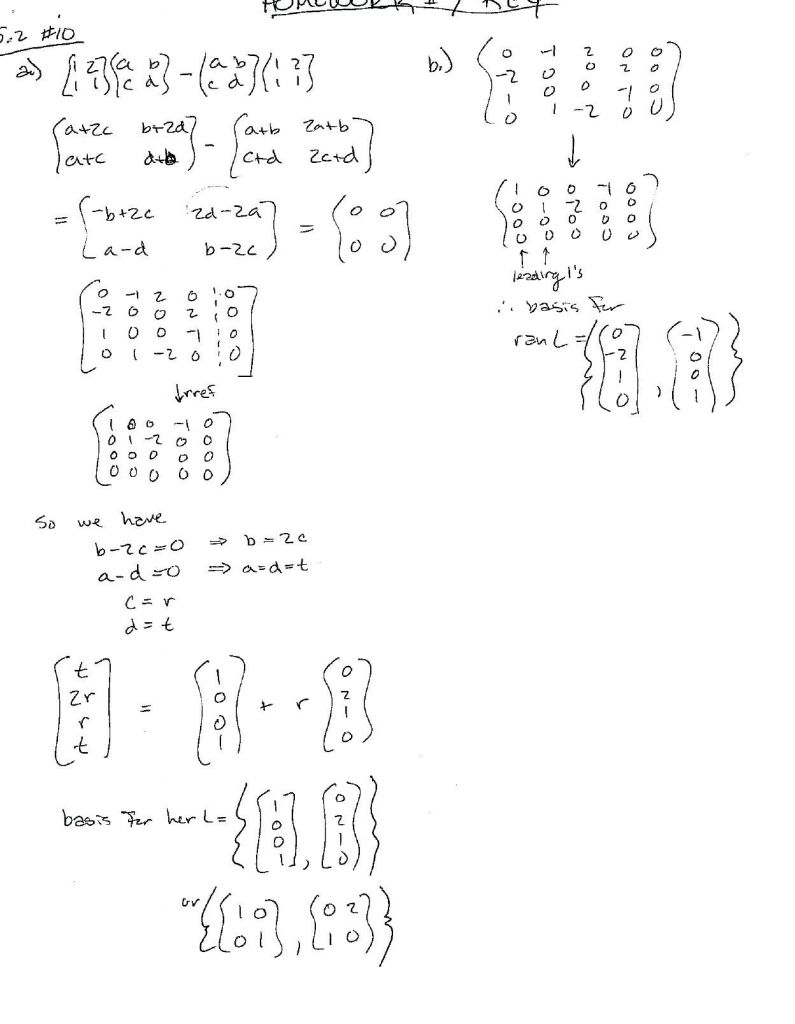 HOMEWORK # 7 KEY
5.2 #10
a.) [1 2; 1 1][a b; c d] - [a b; c d][1 2; 1 1]
[a+2c b+2d; a+c d+b] - [a+b 2a+b; c+d 2c+d]
= [-b+2c 2d-2a; a-d b-2c] = [0 0; 0 0]
0 -1 2 0 0
-2 0 0 2 0
1 0 0 -1 0
0 1 -2 0 0
↓rref
1 0 0 -1 0
0 1 -2 0 0
0 0 0 0 0
0 0 0 0 0
So we have
b-2c=0 ⇒ b=2c
a-d=0 ⇒ a=d=t
c=r
d=t
[t; 2r; r; t] = [1; 0; 0; 1] + r [0; 2; 1; 0]
basis for ker L = {[1; 0; 0; 1], [0; 2; 1; 0]}
or {[1 0; 0 1], [0 2; 1 0]}
b.)
0 -1 2 0 0
-2 0 0 2 0
1 0 0 -1 0
0 1 -2 0 0
↓
1 0 0 -1 0
0 1 -2 0 0
0 0 0 0 0
0 0 0 0 0
↑ ↑
leading 1's
∴ basis for
ran L = {[0; -2; 1; 0], [-1; 0; 0; 1]}